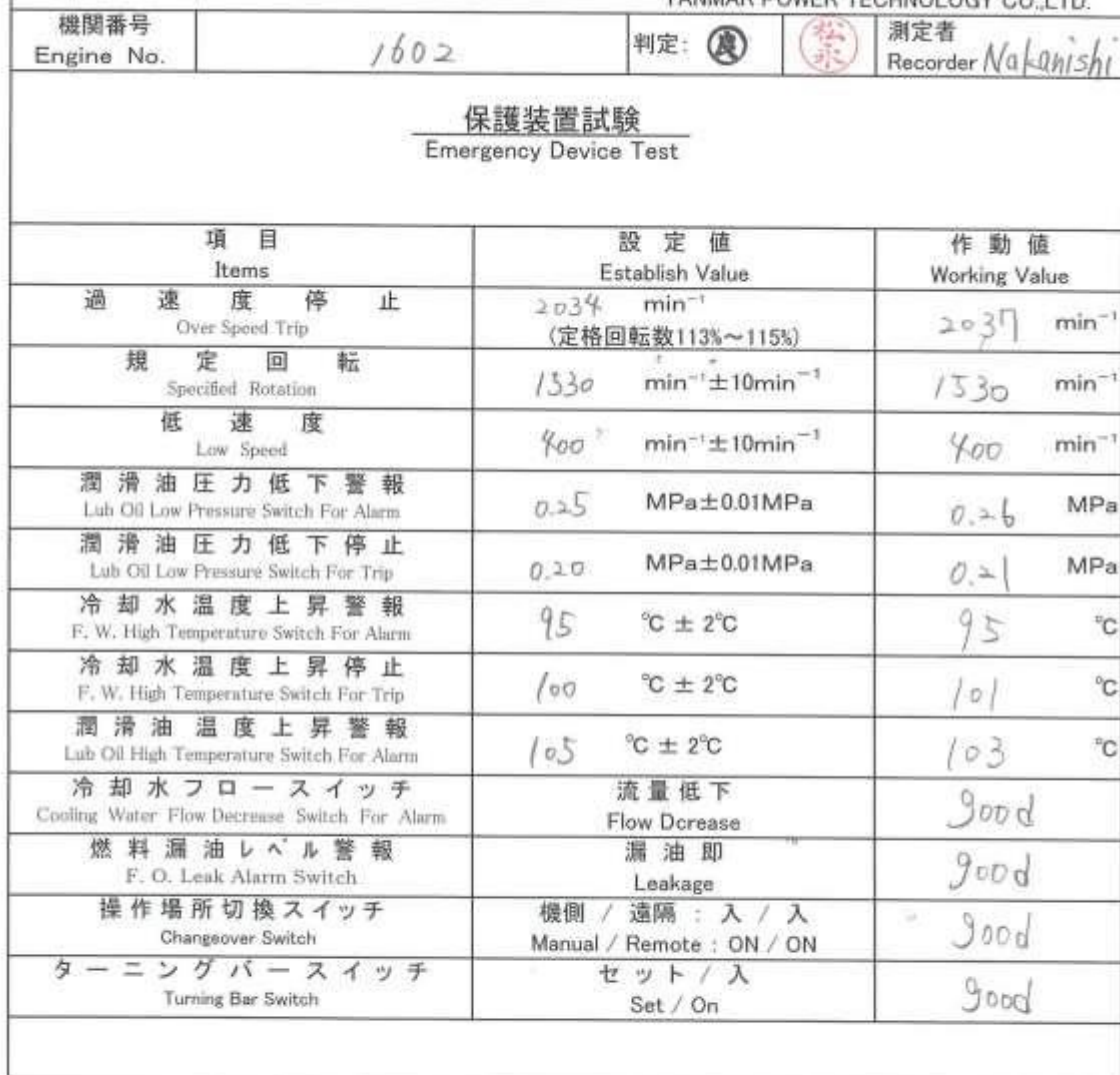 YANMAR POWER TECHNOLOGY CO.,LTD.
機関番号
Engine No.
1602
判定: 良
松永
測定者
Recorder Nakanishi
保護装置試験
Emergency Device Test
項 目
Items
設 定 値
Establish Value
作 動 値
Working Value
過 速 度 停 止
Over Speed Trip
2034 min⁻¹
(定格回転数113%~115%)
2037 min⁻¹
規 定 回 転
Specified Rotation
1530 min⁻¹±10min⁻¹
1530 min⁻¹
低 速 度
Low Speed
400 min⁻¹±10min⁻¹
400 min⁻¹
潤 滑 油 圧 力 低 下 警 報
Lub Oil Low Pressure Switch For Alarm
0.25 MPa±0.01MPa
0.26 MPa
潤 滑 油 圧 力 低 下 停 止
Lub Oil Low Pressure Switch For Trip
0.20 MPa±0.01MPa
0.21 MPa
冷 却 水 温 度 上 昇 警 報
F. W. High Temperature Switch For Alarm
95 ℃ ± 2℃
95 ℃
冷 却 水 温 度 上 昇 停 止
F. W. High Temperature Switch For Trip
100 ℃ ± 2℃
101 ℃
潤 滑 油 温 度 上 昇 警 報
Lub Oil High Temperature Switch For Alarm
105 ℃ ± 2℃
103 ℃
冷 却 水 フ ロ ー ス イ ッ チ
Cooling Water Flow Decrease Switch For Alarm
流 量 低 下
Flow Dcrease
good
燃 料 漏 油 レ ベ ル 警 報
F. O. Leak Alarm Switch
漏 油 即
Leakage
good
操 作 場 所 切 換 ス イ ッ チ
Changeover Switch
機側 / 遠隔 : 入 / 入
Manual / Remote : ON / ON
good
タ ー ニ ン グ バ ー ス イ ッ チ
Turning Bar Switch
セ ッ ト / 入
Set / On
good